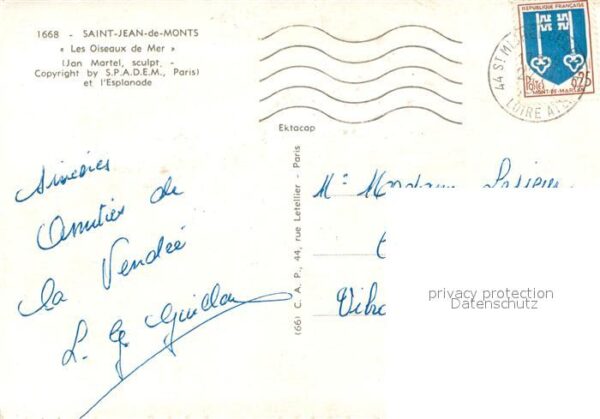 1668 - SAINT-JEAN-de-MONTS
« Les Oiseaux de Mer »
(Jan Martel, sculpt. -
Copyright by S.P.A.D.E.M., Paris)
et l'Esplanade
Ektacap
REPUBLIQUE FRANÇAISE
Postes
0,25
MONT-DE-MARSAN
44 ST M
LOIRE A
Sincères
Amitiés de
la Vendée
L. G. Guillou
(66) C. A. P., 44, rue Letellier - Paris
Mr Madame
privacy protection
Datenschutz